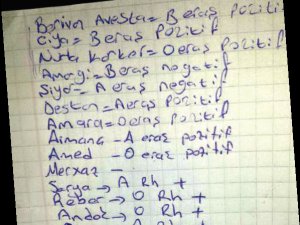 Berivan Avesta = B eraş pozitif
Ciya = B eraş pozitif
Nuda Karker = O eraş pozitif
Amargi = B eraş negatif
Siya = A eraş negatif
Destan = A eraş pozitif
Amara = O eraş pozitif
Aimana - A eraş pozitif
Amed - O eraş pozitif
Merxaz -
Sarya → A Rh +
Reber → O Rh +
Andok → O Rh +
Rh +